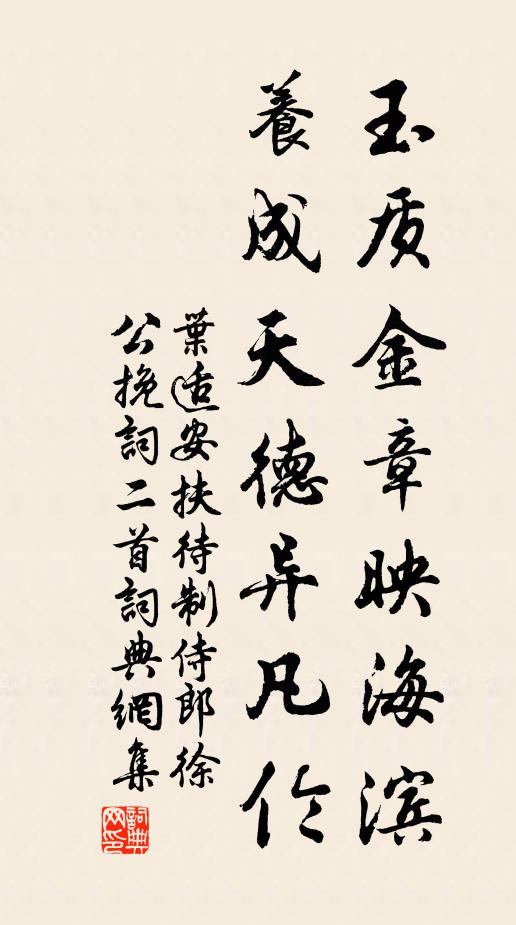 玉质金章映海滨
養成天德异凡伦
葉適安扶待制侍郎徐
公挽詞二首詞典網集
詞典網印